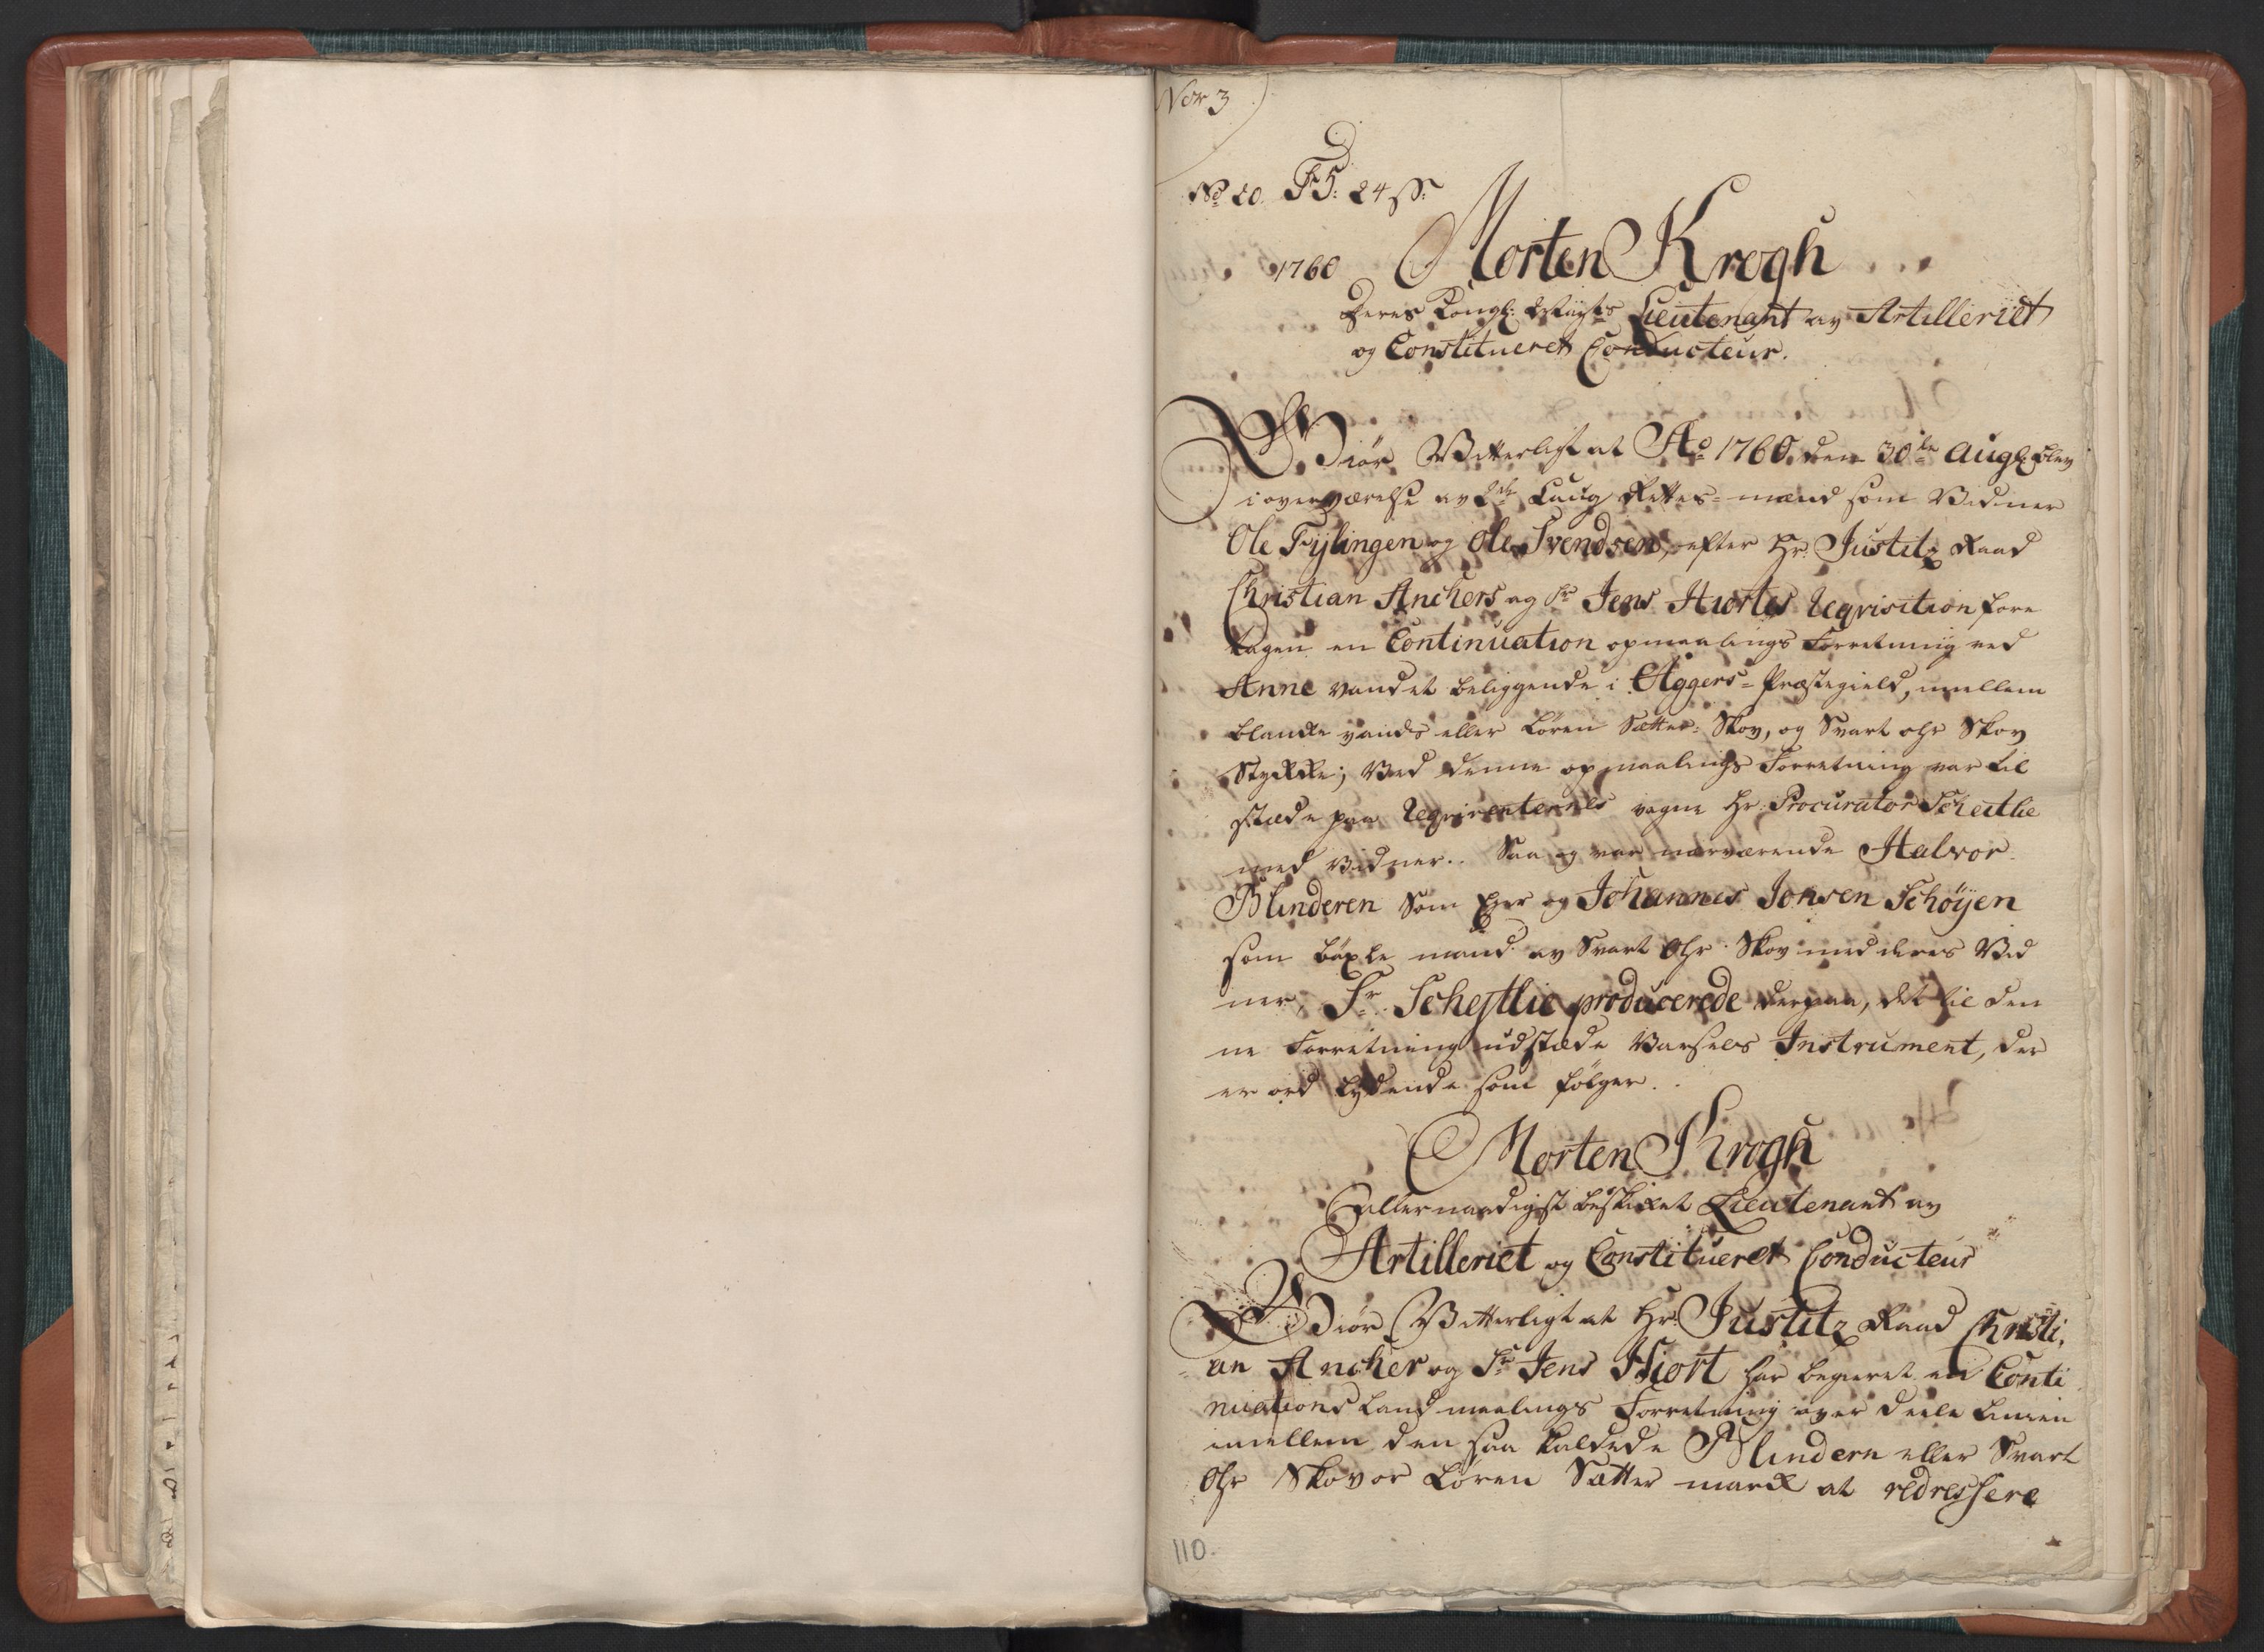 Nor 3
No 20. F5. 24 ß:
1760 Morten Krogh
Deres Kongl: Mayts Lieutenant av Artilleriet
og Constitueret Conducteur.
Giør Vitterligt at Ao 1760 den 30te Augl: blev
i overværelse av 2de Laug Rettes-mænd som Vidner
Ole Fylingen og Ole Svendsen, efter Hr. Justitz Raad
Christian Anchers og Sr Jens Hiortes Reqvisition fore
tagen en Continuation opmaalings Forretning ved
Anne vandet beliggende i Aggers-Præstegield, imellem
blanke vands eller Løren Sætter-Skov, og Svart ohr Skov
Stykke; Ved denne opmaalings Forretning var til
stæde paa Reqvirenternes vegne Hr. Procurator Scheitlie
med Vidner. Saa og var nærværende Halvor
Blinderen som Eyer og Johannes Jonsen Schøyen
som bøxle mand av Svart Ohr Skov med deres Vid
ner, Sr. Schejtlie producerede derpaa, det til den
ne Forretning udstæde Varsels Instrument, der
er ord lydende som følger.
Morten Krogh
allernaadigst beskikket Lieutenant av
Artilleriet og Constitueret Conducteur
Giør Vitterligt at Hr. Justitz Raad Christi,
an Ancher og Sr Jens Hiort har begieret en Conti
nuations Land maalings Forretning over deele Linien
imellem den saa kaldede Blindern eller Svart
Ohr Skov or Løren Sætter mark at redressere
110.